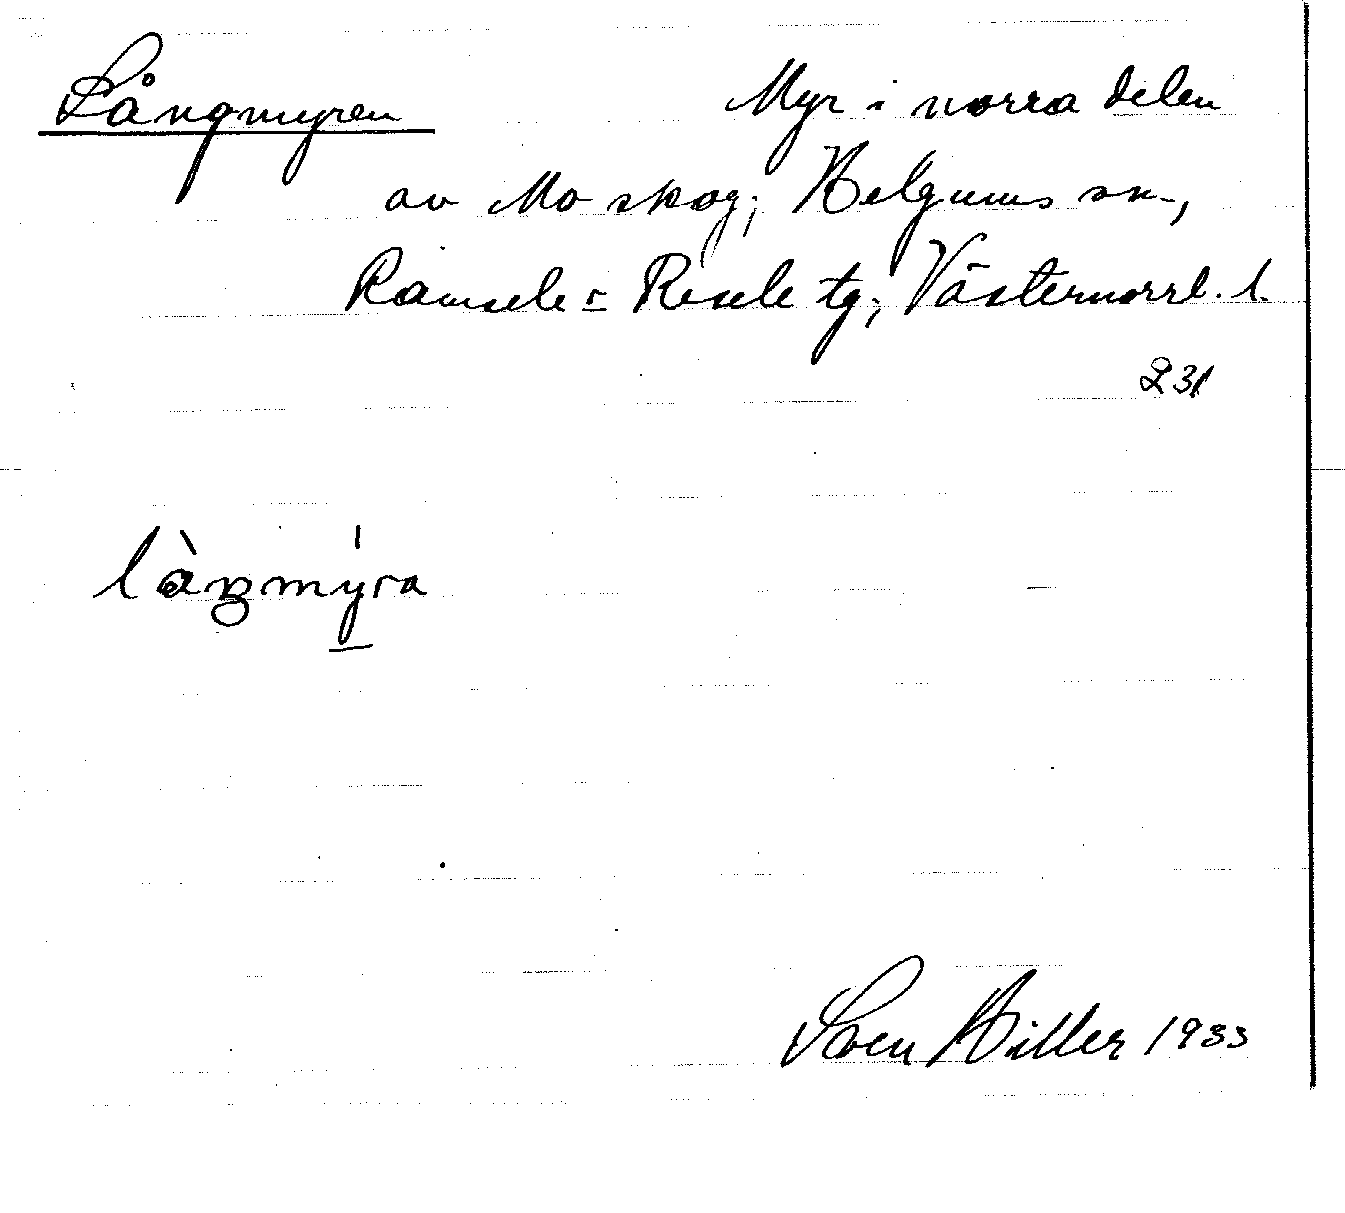 Långmyren Myr i norra delen
av Mo skog; Helgums sn.,
Ramsele = Resele tg; Västernorrl. l.
231
Sven Hiller 1933